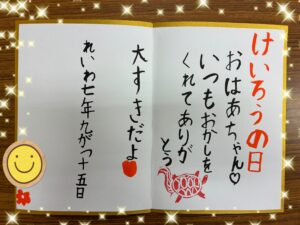 けいろうの日
おばあちゃん♡
いつもおかしを
くれてありが
とう
大すきだよ
れいわ七年九がつ十五日